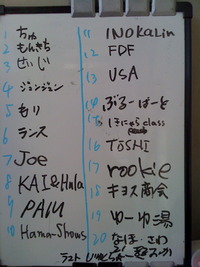 1 ちゅ
2 もんきち
3 せいじ
4 ジョンジョン
5 もり
6 ランス
7 Joe
8 KAI&Hula
9 PAM
10 Hama-Shows
11 INOKALin
12 FDF
13 USA
14 ぶるーはーと
15 class
16 TOSHI
17 rookie
18 キヨス商会
19 ゆーゆ湯
20 なほ・さわ
ラスト